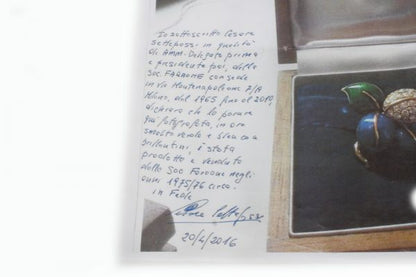 Io sottoscritto Cesare
Settepassi in qualità
di Amm. Delegato prima
e presidente poi, della
Soc FARAONE con sede
in via Montenapoleone 7/A
Milano, dal 1965 fino al 2010,
dichiaro che le
qui fotografata, in oro
smalto verde e bleu con
brillantini, è stata
prodotta e venduta
dalla Soc Faraone negli
anni 1975/76 circa.
in Fede
Cesare Settepassi
20/4/2016